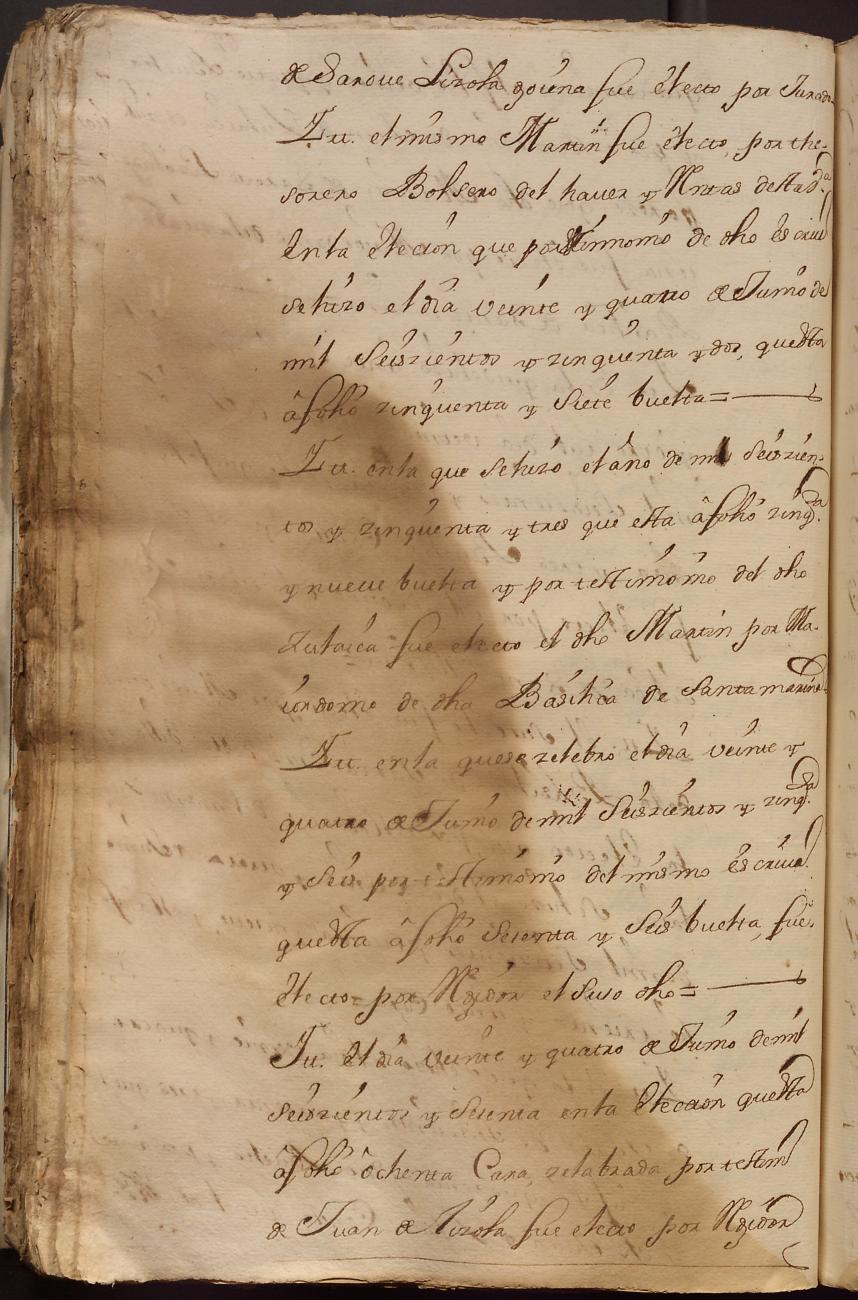 de Sarove Lizola goiena fue êlecto por Jurado
Yu. el mismo Martin fue êlecto, por the-
sorero Bolsero del haver y Rentas desta d.ha
En la êlecion que por testimonio de dho êscriu.
se hizo el dia veinte y quatro de Junio de
mil Seiszientos y zinquenta y dos, questa
â folio zinquenta y Siete buelta =
Yu. en la que se hizo el año de mil Seiszien-
tos y zinquenta y tres que esta â folio zinq.ta
y nueue buelta y por testimonio del dho
Zulaica fue electo el dho Martin por Ma-
iordomo de dha Basilica de Santa marina
Yu. en la que se zelebro el dia veinte y
quatro de Junio de mil Seiszientos y zinq.ta
y Seis por testimonio del mismo êscriua.
questa â folio setenta y Seis buelta, fue
êlecto por Rexidor el Suso dho =
Yu. el dia veinte y quatro de Junio de mil
seiszientos y setenta en la êleccion questa
â folio ôchenta Cara, zelabrada por testim.
de Juan de Lizola fue electo por Rexidor